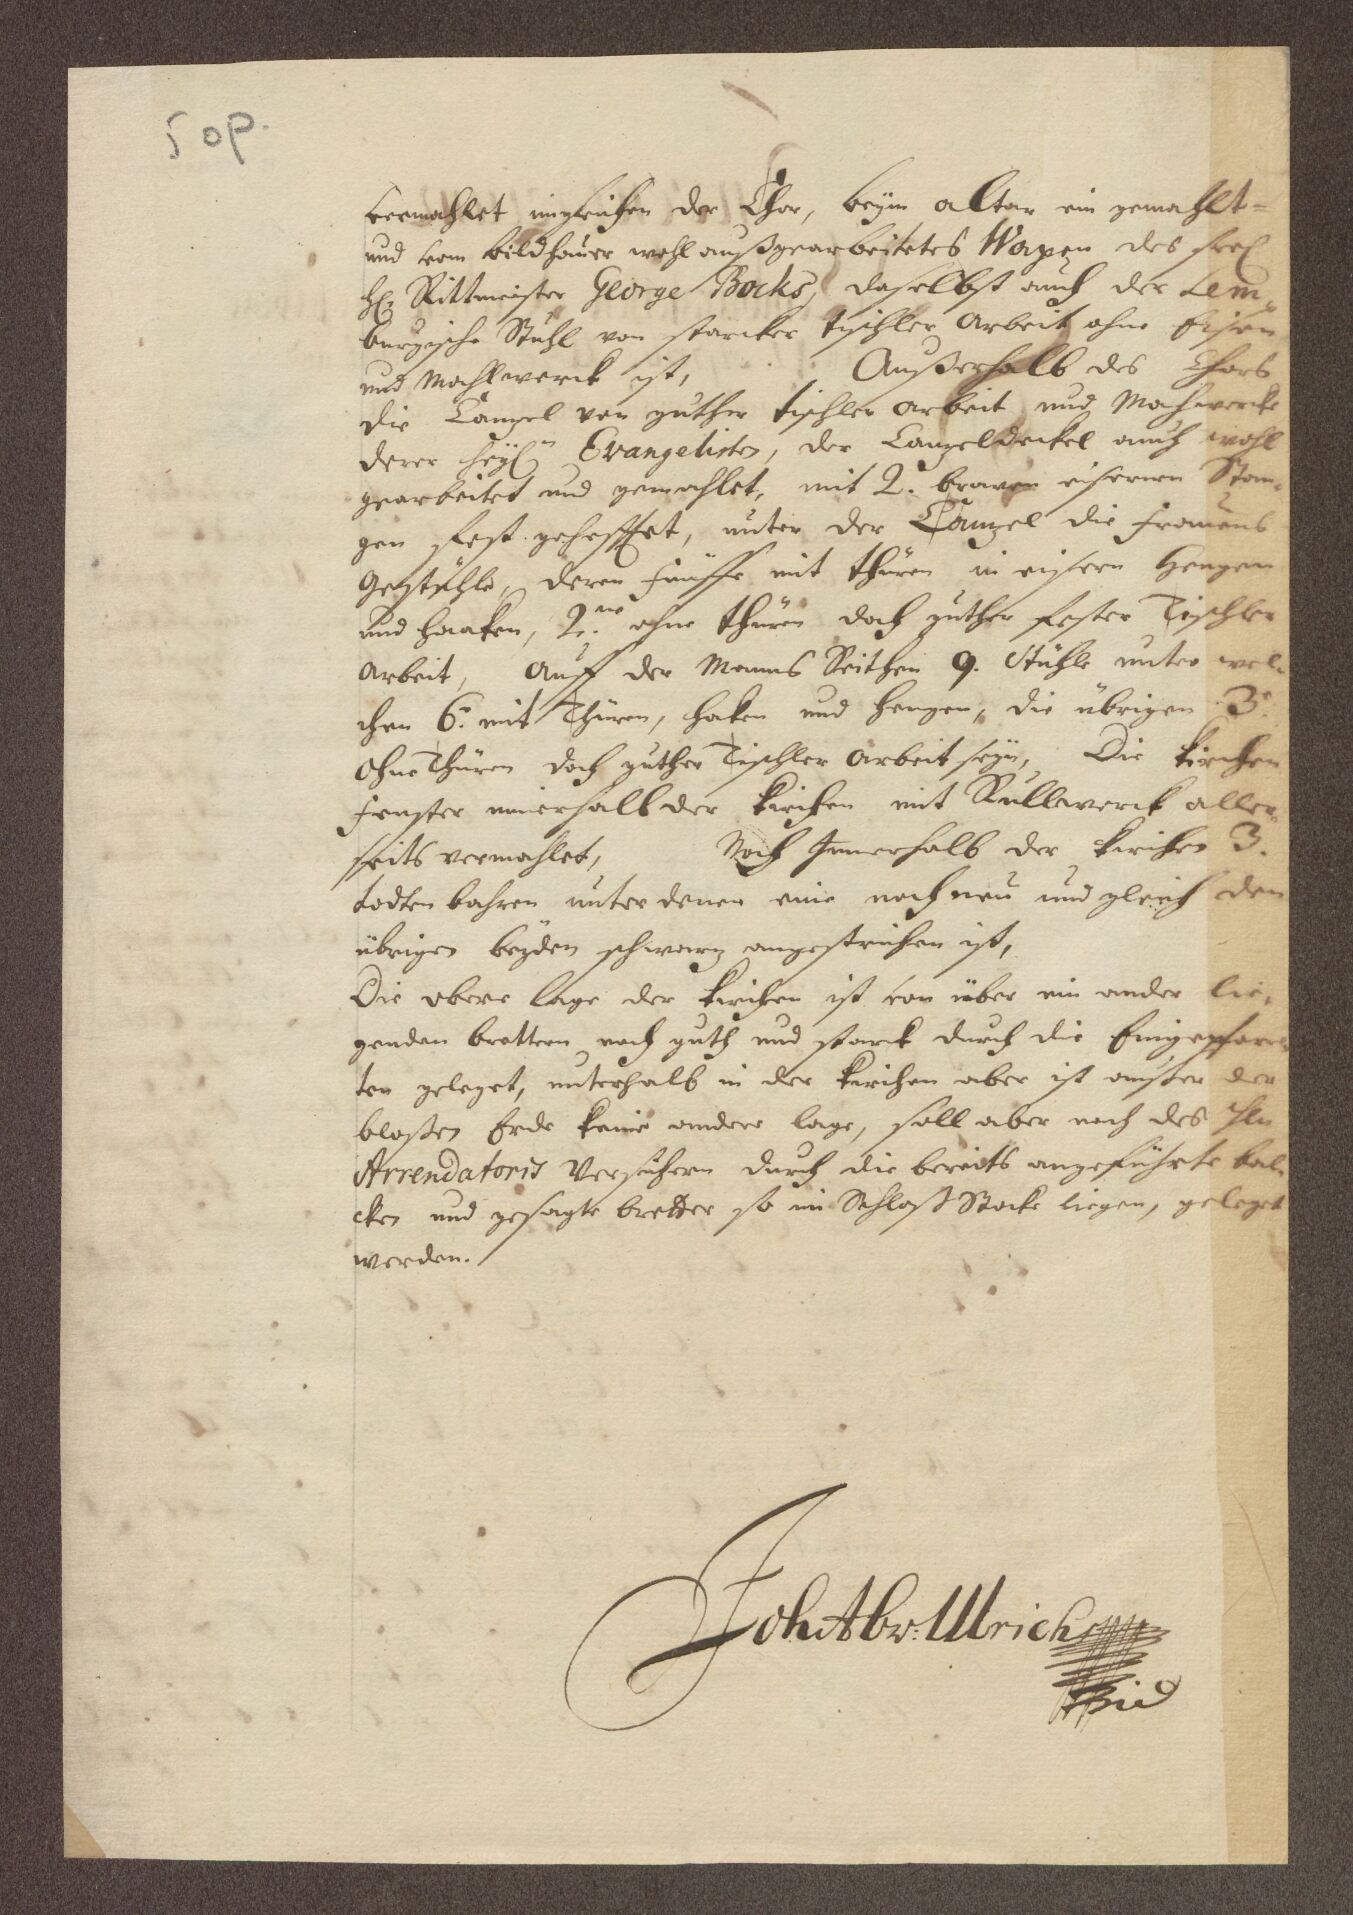 50p.
vermahlet imgleichen der Chor, beym altar ein gemahlt-
und vom bildhauer wohl außgearbeitetes Wapen des seel
H. Rittmeister George Bocks, daselbst auch der Lem-
burgische Stuhl von starcker tischler Arbeit ohne Eisen
und Mahlwerck ist, Außerhalb des Chors
die Cantzel von guther tischler arbeit und Mahwercke
derer heyl. Evangelisten, der Cantzeldeckel auch wohl
gearbeitet und gemahlet, mit 2. braven eisernen Stan-
gen fest gehefftet, unter der Cantzel die Frauens
Gestühle, deren fünffe mit thüren in eisern Hengen
und haaken, 2. ohne thüren doch guther fester Tischler
Arbeit, Auff der Manns Seithen 9. Stühle unter wel-
chen 6. mit Thüren, haken und hengen, die übrigen 3.
ohne Thüren doch guther Tischler Arbeit seyn, Die kirchen
fenster innerhalb der Kirchen mit Rullwerck aller-
seits vermahlet, Noch Innerhalb der kirchen 3.
todten bahren unter denen eine noch neu und gleich den
übrigen beyden schwarz angestrichen ist,
Die obere lage der Kirchen ist von über ein ander lie-
genden brettern noch guth und starck durch die Eingepfarr-
ten geleget, unterhalb in der Kirchen aber ist außer der
bloßen Erde keine andere lage, soll aber nach des Hln
Arrendatoris Versichern durch die bereits angeführte bal-
cken und gesagte bretter so im Schloß Stocke liegen, geleget
werden.
Joh Abr: Ulrich